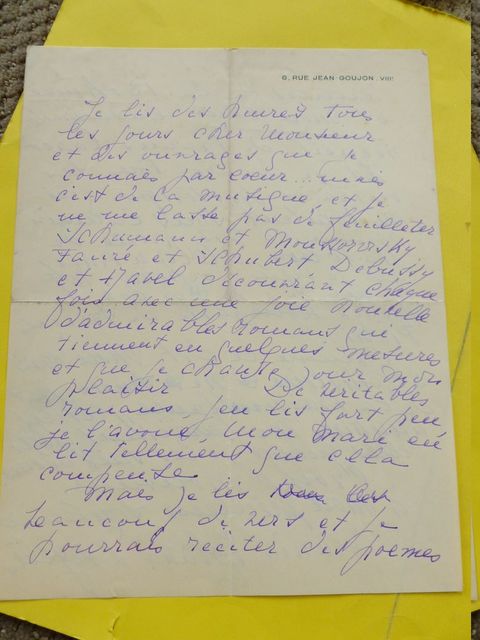 6, RUE JEAN GOUJON. VIIIᵉ
Je lis des heures tous
les jours cher Monsieur
et des ouvrages que je
connais par coeur... mais
c'est de la musique, et je
ne me lasse pas de feuilleter
Schumann et Moussorgsky
Fauré et Schubert Debussy
et Ravel découvrant chaque
fois avec une joie nouvelle
d'admirables romans qui
tiennent en quelques mesures
et que je chante pour mon
plaisir De véritables
romans, j'en lis fort peu
je l'avoue, mon mari en
lit tellement que cela
compense
Mais je lis
beaucoup de vers et je
pourrais réciter des poèmes